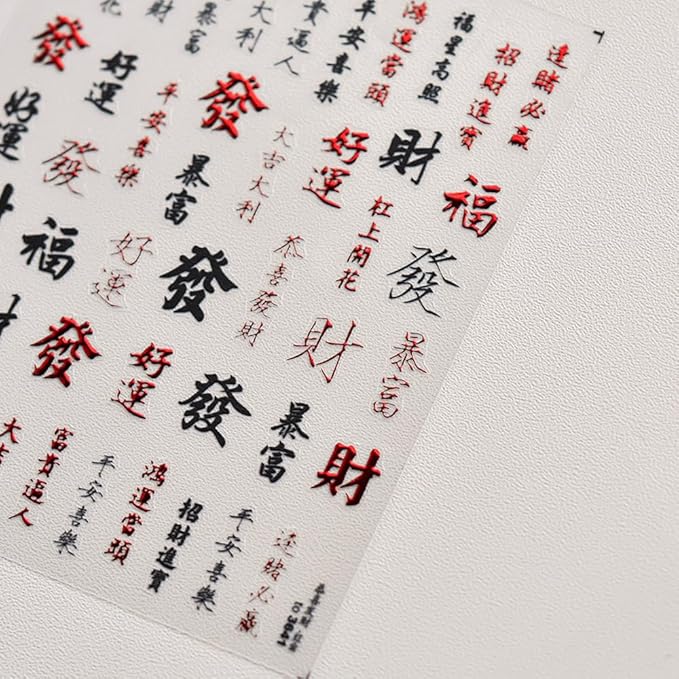 財
暴富
大利
貴逼人
平安喜樂
鴻運當頭
福星高照
招財進寶
逢賭必贏
發
好運
平安喜樂
發
大吉大利
好運
財
福
好運
發
暴富
恭喜發財
杠上開花
發
福
好運
發
財
暴富
發
好運
發
暴富
財
大吉
富貴逼人
平安喜樂
鴻運當頭
招財進寶
平安喜樂
逢賭必贏
3641